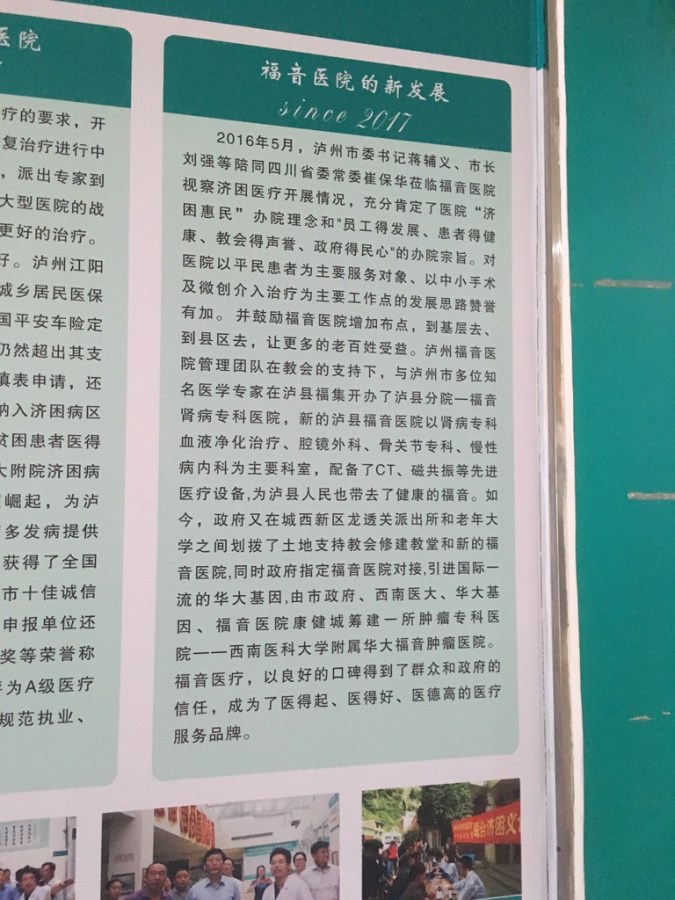 医院
疗的要求，开
复治疗进行中
，派出专家到
大型医院的战
更好的治疗。
好。泸州江阳
城乡居民医保
国平安车险定
仍然超出其支
填表申请，还
纳入济困病区
贫困患者医得
大附院济困病
崛起，为泸
多发病提供
获得了全国
市十佳诚信
申报单位还
奖等荣誉称
为A级医疗
规范执业、
福音医院的新发展
since 2017
2016年5月，泸州市委书记蒋辅义、市长
刘强等陪同四川省委常委崔保华莅临福音医院
视察济困医疗开展情况，充分肯定了医院“济
困惠民”办院理念和"员工得发展、患者得健
康、教会得声誉、政府得民心"的办院宗旨。对
医院以平民患者为主要服务对象、以中小手术
及微创介入治疗为主要工作点的发展思路赞誉
有加。并鼓励福音医院增加布点，到基层去、
到县区去，让更多的老百姓受益。泸州福音医
院管理团队在教会的支持下，与泸州市多位知
名医学专家在泸县福集开办了泸县分院—福音
肾病专科医院，新的泸县福音医院以肾病专科
血液净化治疗、腔镜外科、骨关节专科、慢性
病内科为主要科室，配备了CT、磁共振等先进
医疗设备,为泸县人民也带去了健康的福音。如
今，政府又在城西新区龙透关派出所和老年大
学之间划拨了土地支持教会修建教堂和新的福
音医院,同时政府指定福音医院对接,引进国际一
流的华大基因,由市政府、西南医大、华大基
因、福音医院康健城筹建一所肿瘤专科医
院——西南医科大学附属华大福音肿瘤医院。
福音医疗，以良好的口碑得到了群众和政府的
信任，成为了医得起、医得好、医德高的医疗
服务品牌。
联合济困义